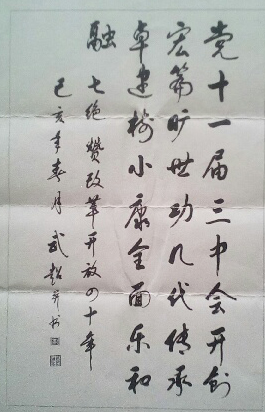 党十一届三中会开创
宏篇旷世功几代传承
卓建梅小康全面乐和
融 七绝 赞改革开放四十年
己亥年春月 武 书